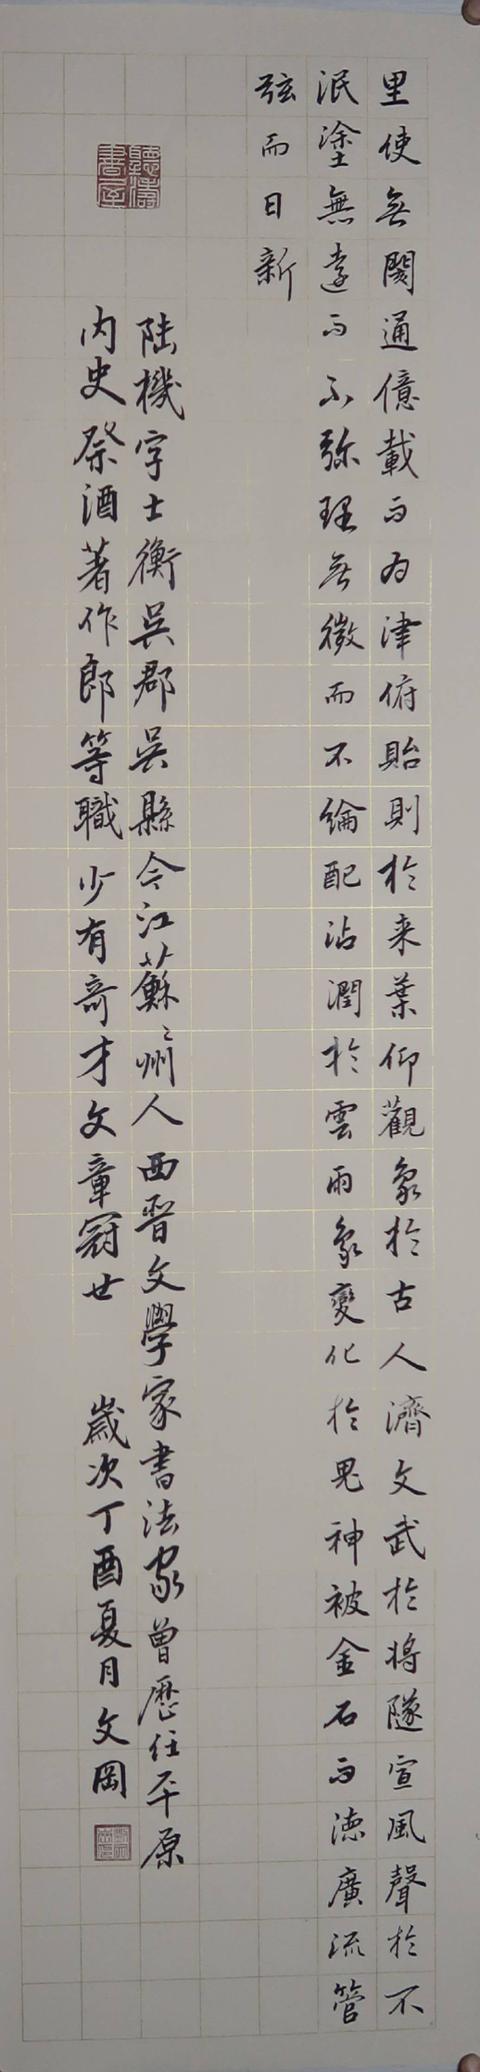 里使無閡通億載而為津俯貽則於来葉仰觀象於古人濟文武於将隧宣風聲於不
泯塗無遠而不弥理無微而不綸配沾潤於雲雨象變化於鬼神被金石而德廣流管
弦而日新
陆機字士衡吳郡吳縣今江蘇蘇州人西晋文學家書法家曾歷任平原
内史祭酒著作郎等職少有奇才文章冠世 歲次丁酉夏月文岡
聽濤書室